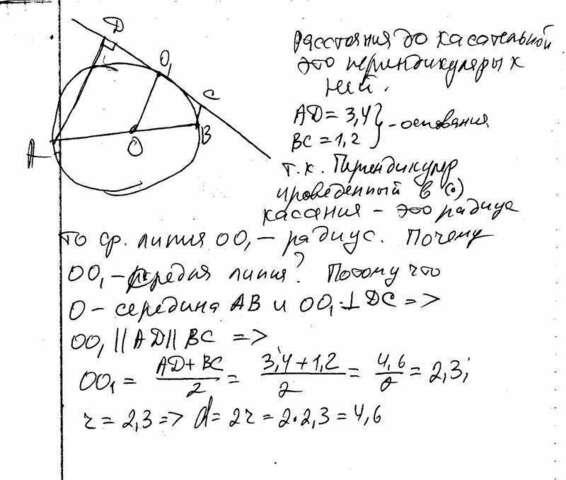 D
O₁
C
A
O
B
Расстояния до касательной
это перпендикуляры к
ней.
AD = 3,4
BC = 1,2
} - основания
т.к. Перпендикуляр
проведенный в (·)
касания - это радиус
то ср. линия OO₁ - радиус. Почему
OO₁ - средняя линия? Потому что
O - середина AB и OO₁ ⊥ DC =>
OO₁ || AD || BC =>
OO₁ = (AD + BC)/2 = (3,4 + 1,2)/2 = 4,6/2 = 2,3;
r = 2,3 => d = 2r = 2·2,3 = 4,6